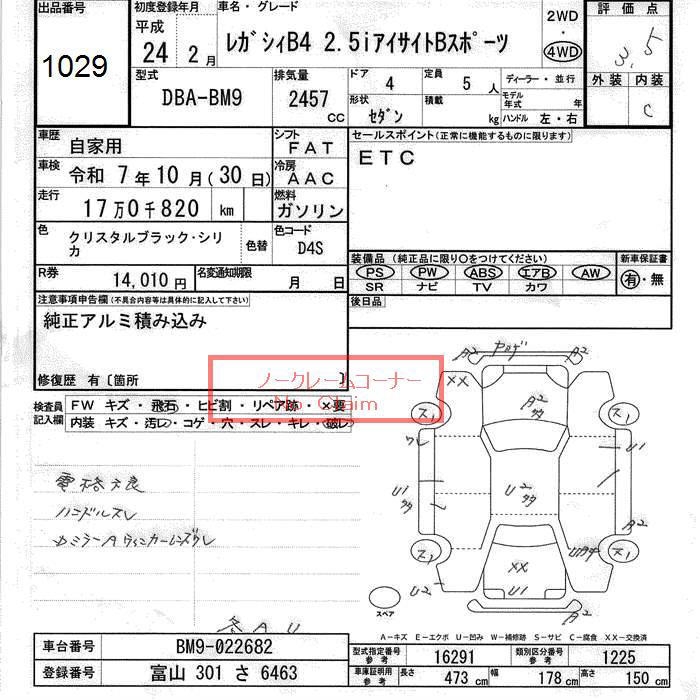 出品番号
1029
初度登録年月
平成
24年2月
車名・グレード
レガシィB4 2.5iアイサイトBスポーツ
2WD
・
4WD
評価点
3.5
外装 内装
C
型式
DBA-BM9
排気量
2457
CC
ドア
4
定員
5人
形状
セダン
積載
kg
ディーラー・並行
モデル年式 年
ハンドル 左・右
車歴
自家用
シフト
FAT
セールスポイント(正常に機能するものに限ります)
ETC
車検
令和 7年10月(30日)
冷房
AAC
走行
17万0千820 km
燃料
ガソリン
色
クリスタルブラック・シリ
カ
色替
色コード
D4S
装備品(純正品に限り○をつけてください)
PS PW ABS エアB AW
SR ナビ TV カワ
新車保証書
有・無
R券
14,010円
名変通知期限
月 日
後日品
注意事項申告欄(不具合内容等は具体的に記入して下さい)
純正アルミ積み込み
修復歴 有〔箇所 〕
ノークレームコーナー
No Claim
検査員
記入欄
FW キズ・飛石・ヒビ割・リペア跡・×要
内装 キズ・汚レ・コゲ・穴・スレ・キレ・破レ
電格不良
ハンドルスレ
A2
A2
XX
A2
ス1
ス1
ワレ
U1
U1
U2
A2
ス1
ス1
XX
U2
U1
A2
スペア
A-キズ E-エクボ U-凹み W-補修跡 S-サビ C-腐食 XX-交換済
車台番号
BM9-022682
登録番号
富山 301 さ 6463
型式指定番号
参考
16291
類別区分番号
参考
1225
車庫証明用
参考
長さ
473 cm
幅
178 cm
高さ
150 cm